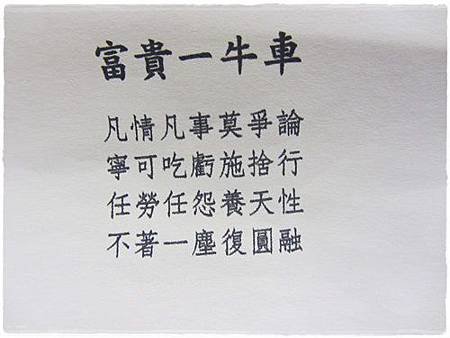 富貴一牛車
凡情凡事莫爭論
寧可吃虧施捨行
任勞任怨養天性
不著一塵復圓融